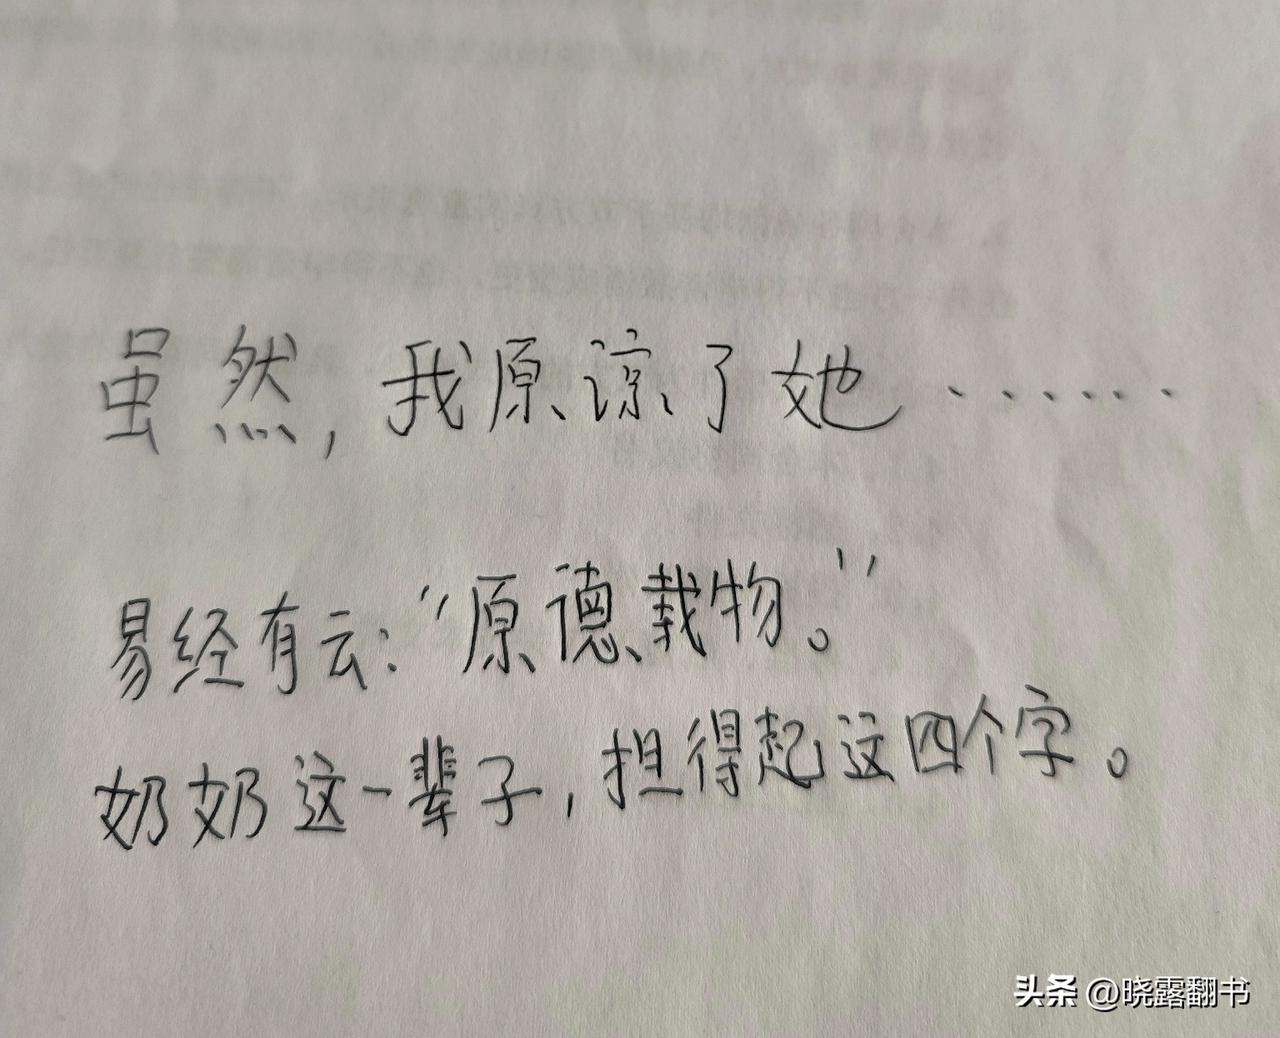 虽然，我原谅了她……
易经有云：“原德载物。”
奶奶这一辈子，担得起这四个字。
头条 @晓露翻书